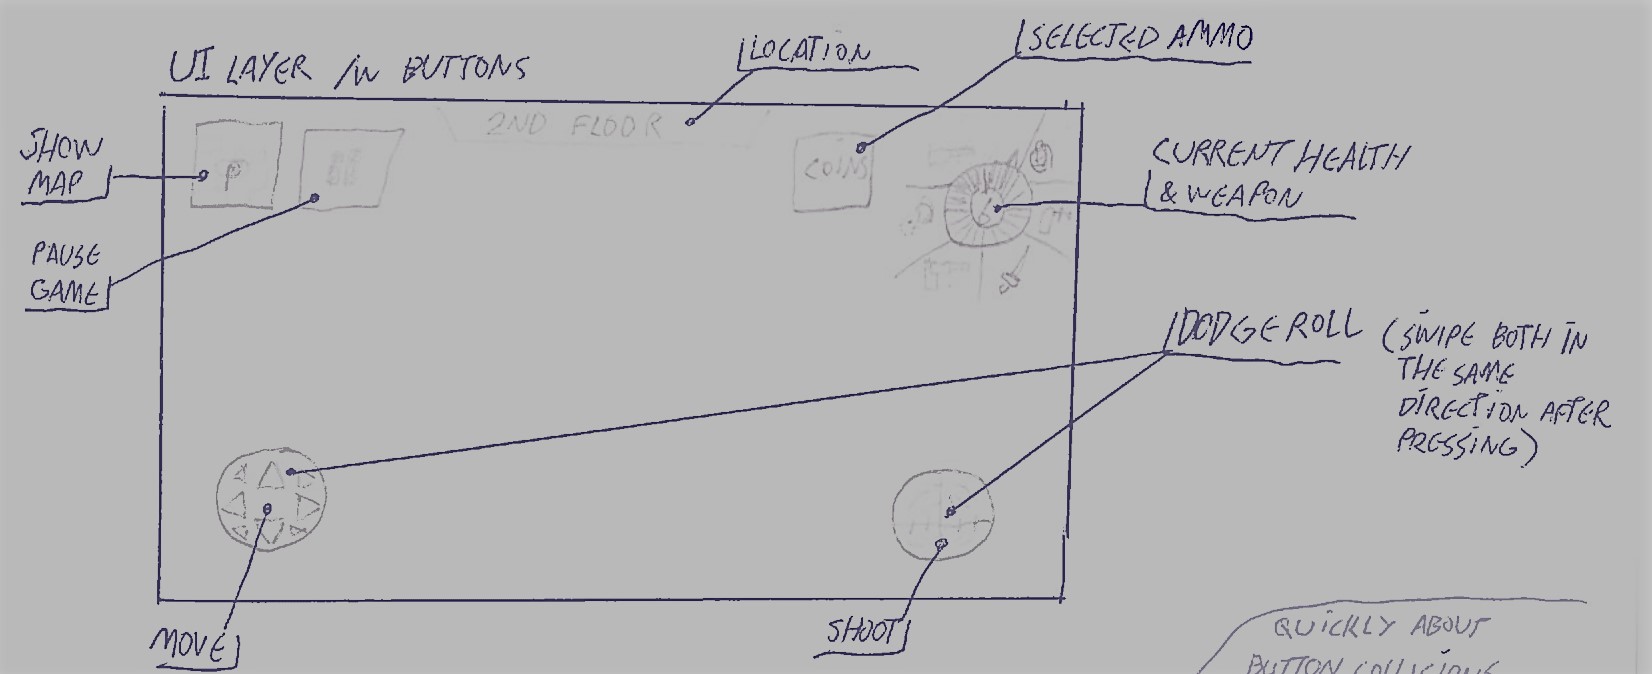 UI LAYER /W BUTTONS
LOCATION
SELECTED AMMO
2ND FLOOR
SHOW
MAP
P
COINS
CURRENT HEALTH
& WEAPON
PAUSE
GAME
DODGE ROLL (SWIPE BOTH IN
THE SAME
DIRECTION AFTER
PRESSING)
MOVE
SHOOT
QUICKLY ABOUT
BUTTON COLLISIONS